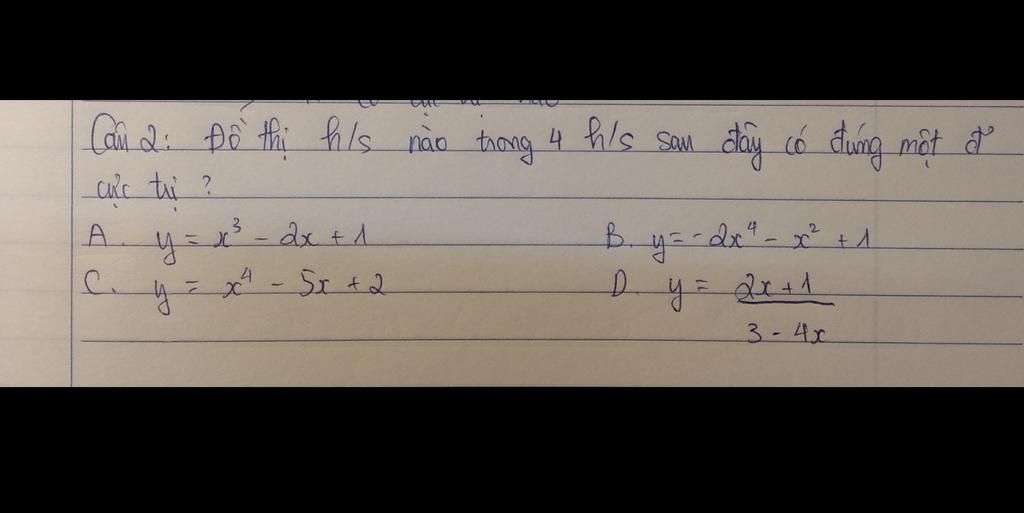 Câu 2: Đồ thị h/s nào trong 4 h/s sau đây có đúng một đ'
cực trị ?
A. y = x³ - 2x + 1 B. y = -2x⁴ - x² + 1
C. y = x⁴ - 5x + 2 D. y = 2x + 1
3 - 4x